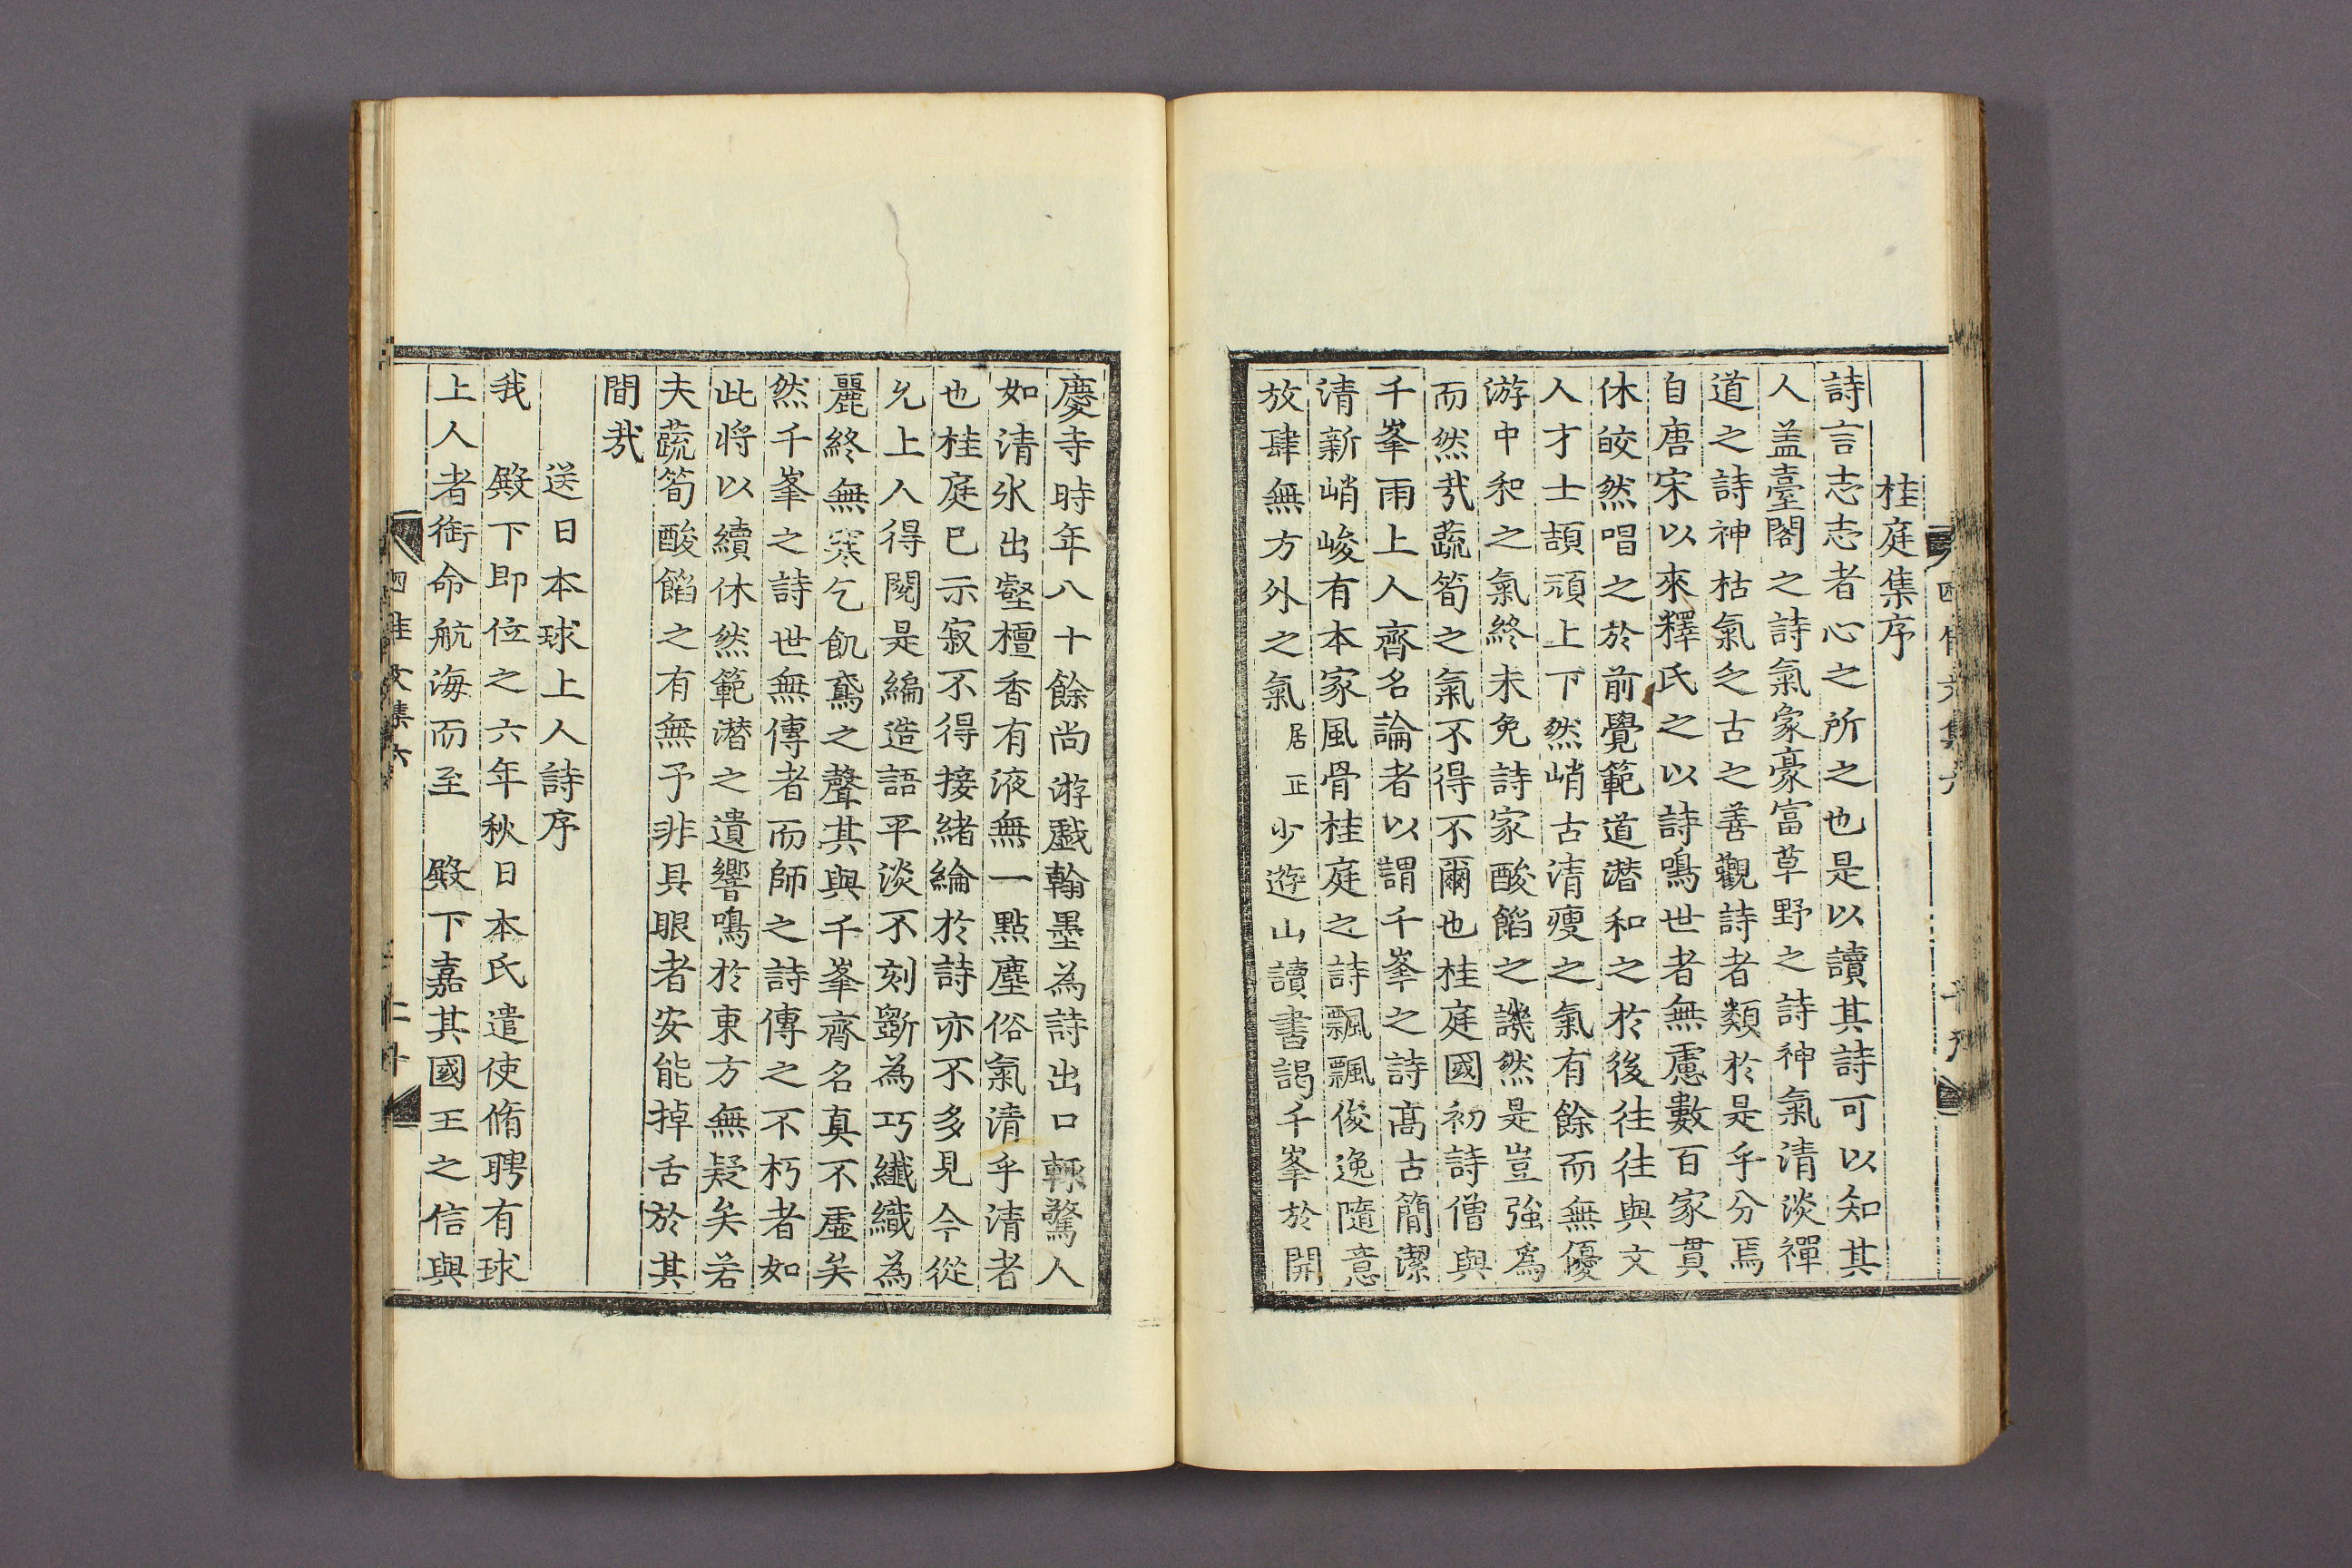 桂庭集序
詩言志志者心之所之也是以讀其詩可以知其
人盖臺閣之詩氣象豪富草野之詩神氣清淡禪
道之詩神枯氣乏古之善觀詩者類於是乎分焉
自唐宋以來釋氏之以詩鳴世者無慮數百家貫
休皎然唱之於前覺範道潛和之於後往往與文
人才士頡頏上下然峭古清瘦之氣有餘而無優
游中和之氣終未免詩家酸餡之譏然是豈強爲
而然㢤蔬筍之氣不得不爾也桂庭國初詩僧與
千峯雨上人齊名論者以謂千峯之詩高古簡潔
清新峭峻有本家風骨桂庭之詩飄飄俊逸隨意
放肆無方外之氣居正少遊山讀書謁千峯於開
慶寺時年八十餘尚游戲翰墨為詩出口輒驚人
如清氷出壑檀香有液無一點塵俗氣清乎清者
也桂庭已示寂不得接緒綸於詩亦不多見今從
允上人得閱是編造語平淡不刻斲為巧纖織為
麗終無寒乞飢鳶之聲其與千峯齊名真不虛矣
然千峯之詩世無傳者而師之詩傳之不朽者如
此將以續休然範潛之遺響鳴於東方無疑矣若
夫蔬筍酸餡之有無予非具眼者安能掉舌於其
間㢤
送日本球上人詩序
我 殿下即位之六年秋日本氏遣使脩聘有球
上人者銜命航海而至 殿下嘉其國王之信與
四佳文集六